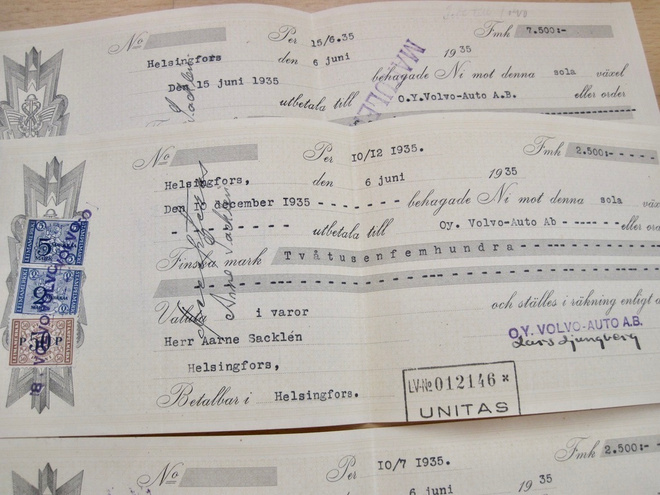 No Per 15/6.35 Fmk 7.500:-
Helsingfors den 6 juni 1935
Den 15 juni 1935 behagade Ni mot denna sola växel
utbetala till O.Y.Volvo-Auto A.B. eller order
No Per 10/12 1935. Fmk 2.500:- - - - -
Helsingfors, den 6 juni 1935
Den 10 december 1935 - - - - - - - behagade Ni mot denna sola växel
- - - - - - - - utbetala till Oy. Volvo-Auto Ab - - - - - - eller order
Finska mark Tvåtusenfemhundra - - - - - - - -
Valuta i varor och ställes i räkning enligt
Herr Aarne Sacklén O.Y. VOLVO-AUTO A.B.
Helsingfors, Lars Ljungberg
Betalbar i Helsingfors.
LV-No 012146 *
UNITAS
No Per 10/7 1935. Fmk 2.500:- - -
6 juni 1935